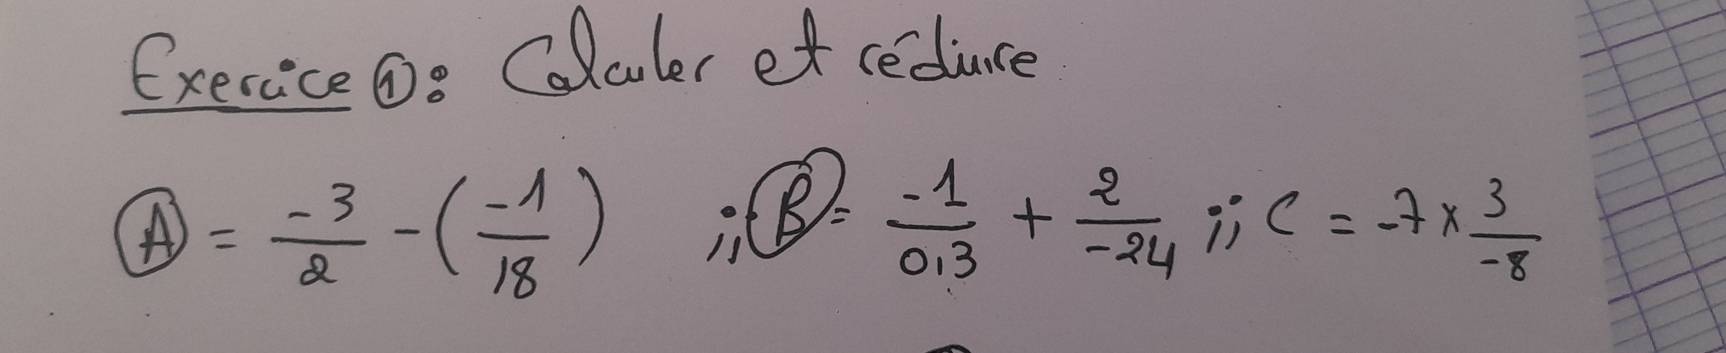 Exercice ①: Calculer et réduire
A = -3/2 - (-1/18) ;; B = -1/0,3 + 2/-24 ;; C = -7 × 3/-8